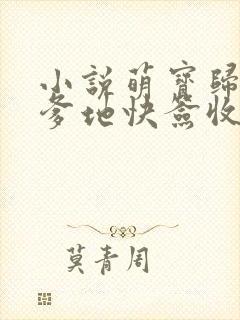 小說萌寶歸
爹地快簽收
莫青周